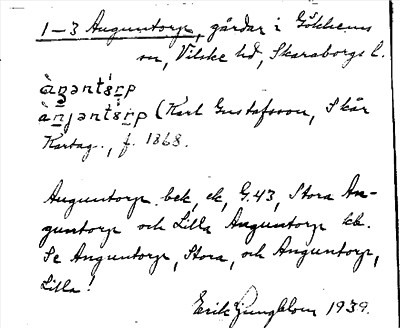 1–3 Anguntorp, gårdar i Gökhems
sn, Vilske hd, Skaraborgs l.
(Karl Gustafsson, Skår
Kartag., f. 1868.
Anguntorp bek, ek, G.43, Stora An-
guntorp och Lilla Anguntorp kb.
Se Anguntorp, Stora, och Anguntorp,
Lilla!
Erik Ljungblom 1939.